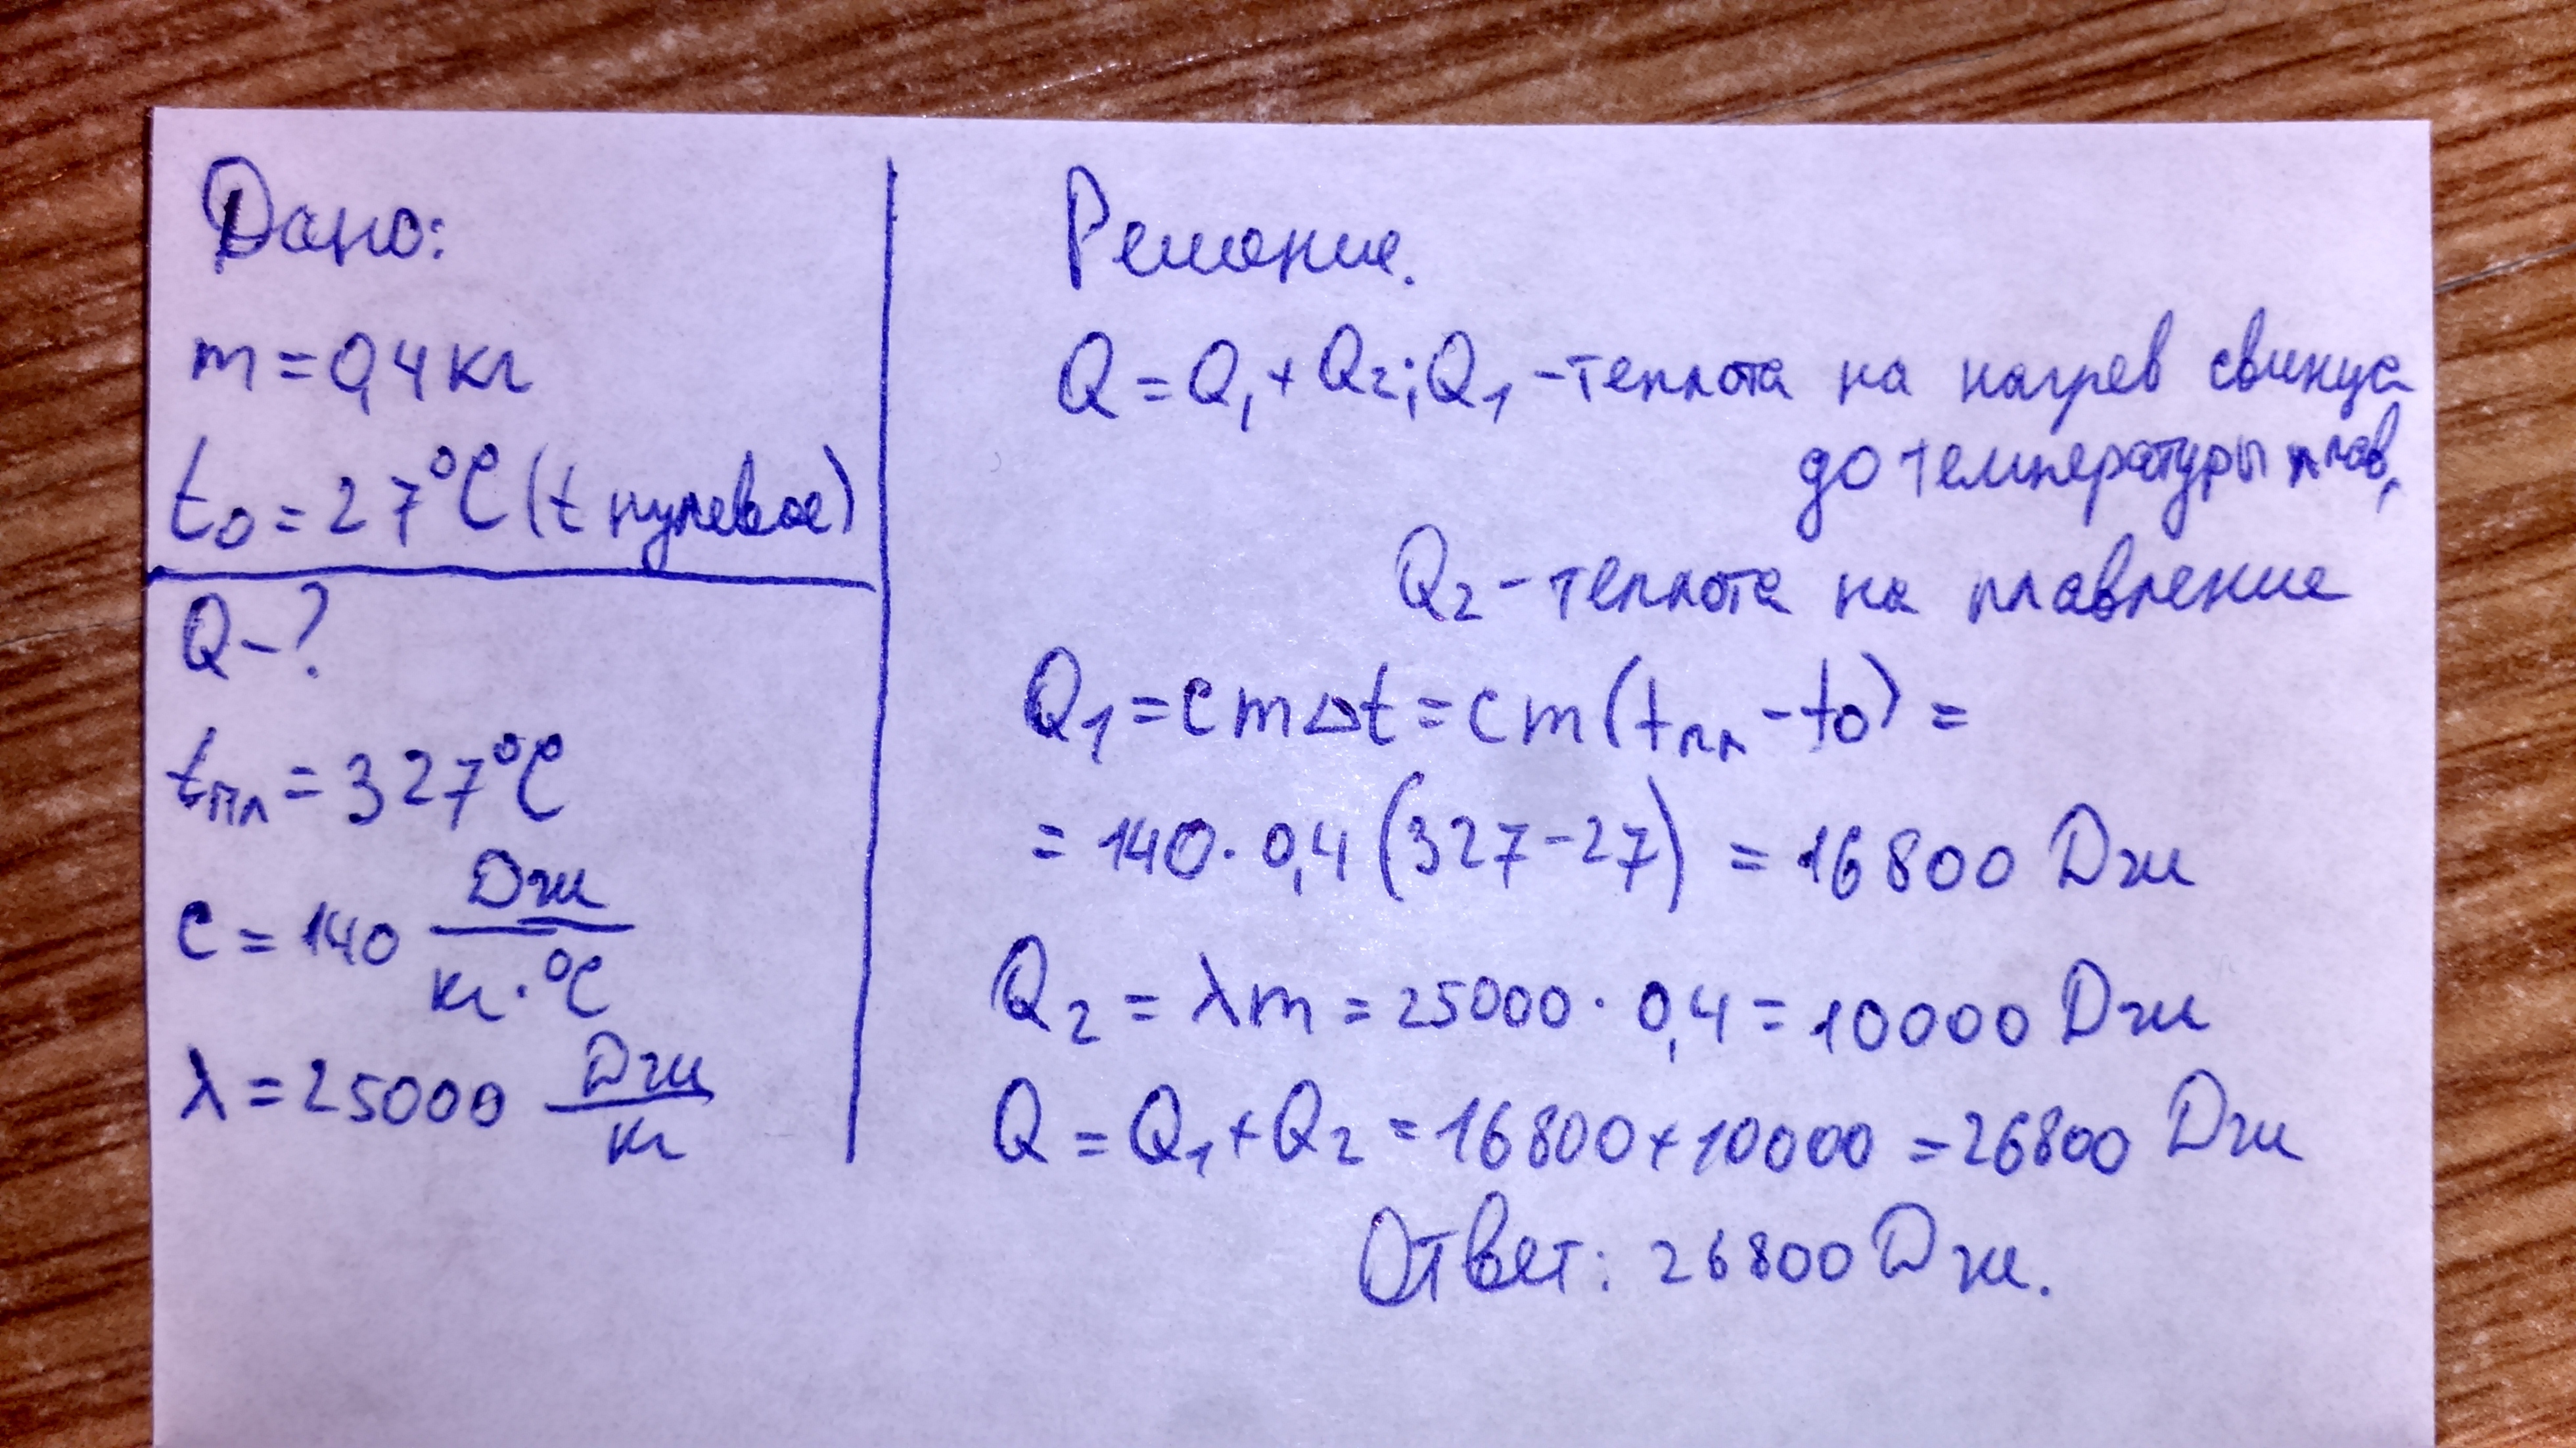 Дано:
m = 0,4 кг
t₀ = 27°C (t нулевое)
Q - ?
tпл = 327°C
c = 140 Дж/кг·°C
λ = 25000 Дж/кг
Решение.
Q = Q₁ + Q₂; Q₁ - теплота на нагрев свинца
до температуры плав,
Q₂ - теплота на плавление
Q₁ = cmΔt = cm(tпл - t₀) =
= 140 · 0,4 (327 - 27) = 16800 Дж
Q₂ = λm = 25000 · 0,4 = 10000 Дж
Q = Q₁ + Q₂ = 16800 + 10000 = 26800 Дж
Ответ: 26800 Дж.